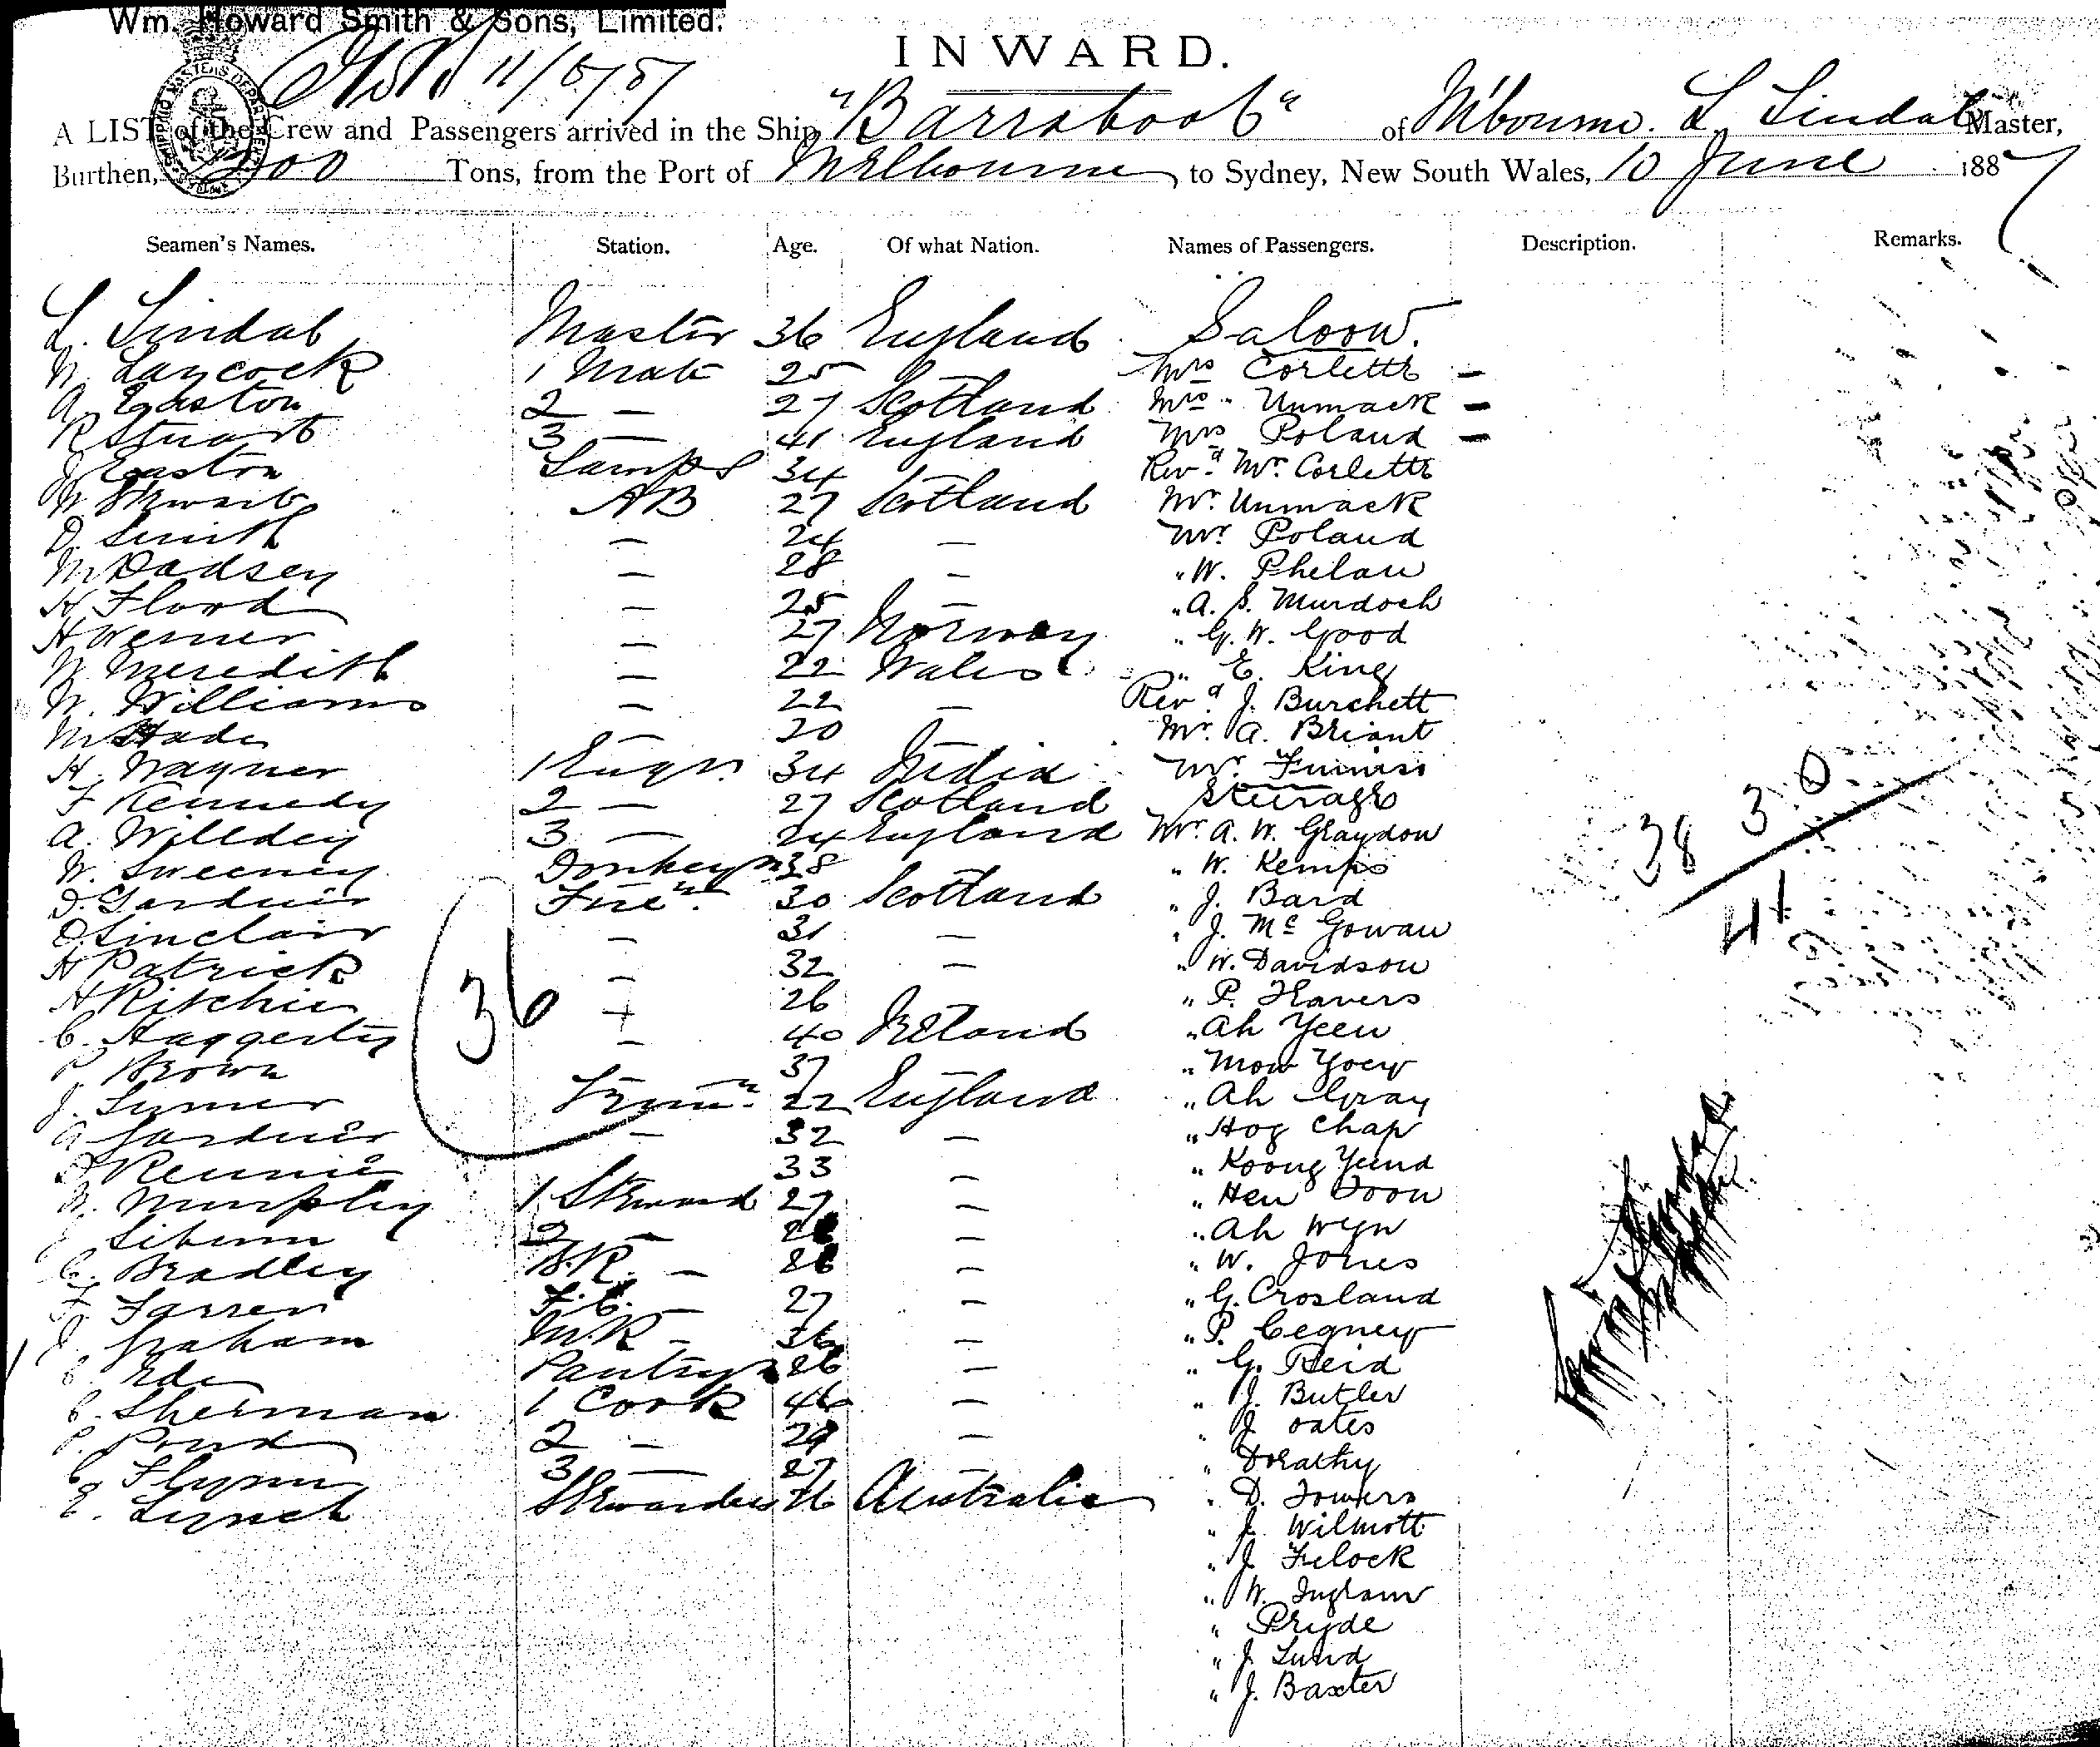 Wm. Howard Smith & Sons, Limited.
INWARD.
A LIST of the Crew and Passengers arrived in the Ship "Barrabool" of M'bourne. L Lindal Master,
Burthen, Tons, from the Port of Melbourne, to Sydney, New South Wales, 10 June 1887
Seamen's Names. Station. Age. Of what Nation. Names of Passengers. Description. Remarks.
L. Lindal Master 36 England Saloon.
W. Laycock 1 Mate 25 — Mrs Corlette —
A. Easton 2 — 27 Scotland Mrs " Unmack —
R Stuart 3 — 41 England Mrs Poland —
J Easton Lamps 34 — Revd. Mr. Corlette
W Stewart AB 27 Scotland Mr. Unmack
D. Smith — 24 — Mr. Poland
M Dadsey — 28 — " W. Phelan
H Flood — 25 — " A. S. Murdoch
H Werner — 27 Norway " G. W. Good
W Meredith — 22 Wales " E. King
W. Williams — 22 — Revd. J. Burchett
M — 20 — Mr. A. Briant
H. Wagner 1 Engr. 34 India Mr. Funiss
F Kennedy 2 — 27 Scotland Steerage
A. Willdey 3 — 24 England Mr. A. W. Graydon
W. Sweeney Donkeyn 38 " W. Kemps
D. Gardner Firen. 30 Scotland " J. Bard
D Sinclair — 31 — " J. McGowan
H Patrick — 32 — " W. Davidson
H Ritchie — 26 " P. Havers
C. Haggerty — 40 Ireland " Ah Yeen
P Brown 37 — " Mow Yoey
J. Turner Trimn. 22 England " Ah Gray
A Gardner — 32 — " Hog Chap
Rennie 33 — " Koong Yeend
W. Murphy 1 Steward 27 — " Hen Doon
Liburn 2 — — " Ah Wyn
C. Bradley B.R. — 26 — " W. Jones
F. Farren F.C. — 27 — " G. Crosland
J. Graham M.R — 36 — " P. Cegney
E. Ede Pantryn 26 — " G. Reid
C. Sherman 1 Cook 46 — " J. Butler
P. Pond 2 — 29 — " J Oates
C. Flynn 3 — 27 — " Dorathy
E. Lynch Stewardess 26 Australia " D. Towers
" J. Wilmott
" J. Filock
" W. Ingram
" Pryde
" J. Lund
" J. Baxter
36
38 30
41